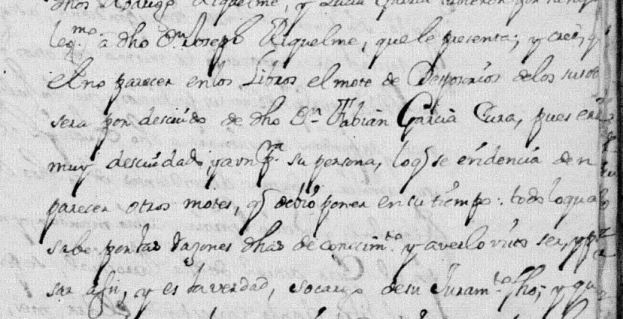 dhos Rodrigo Riquelme, y Lucia Garcia tubieron por su hijo
leg.mo a dho Dn Joseph Riquelme, que le presenta; y cree, q
el no parecer en los Libros el mote de Desposorios de los susod
sera por descuido de dho Dn Fabian Garcia Cura, pues era
muy descuidado, y aun pa su persona, lo q se evidencia de n
parecer otros motes, q debio poner en su tiempo: todo lo qual
save por las razones dhas de conocim.to y averlo visto ser, y pa
sar assi, y es la verdad, so cargo de su Juram.to fho; y que